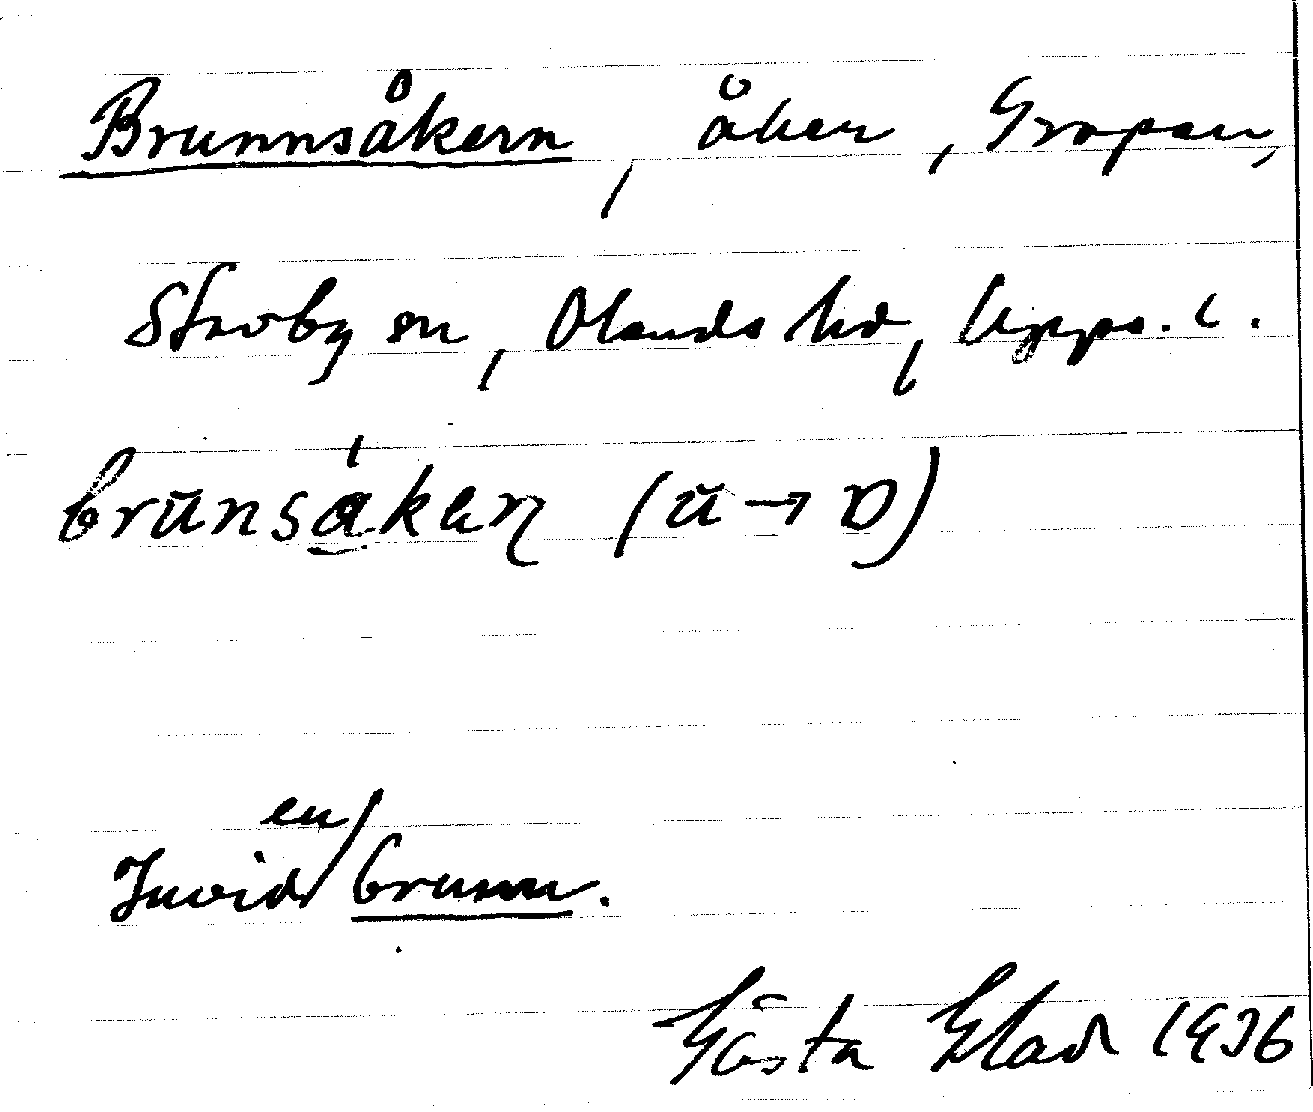 Brunnsåkern, åker, Gropen,
Skoby sn, Olands hd, Upps. l.
brunsåkeɳ (u → ɒ)
en
Invid brunn.
Gösta Elad 1936